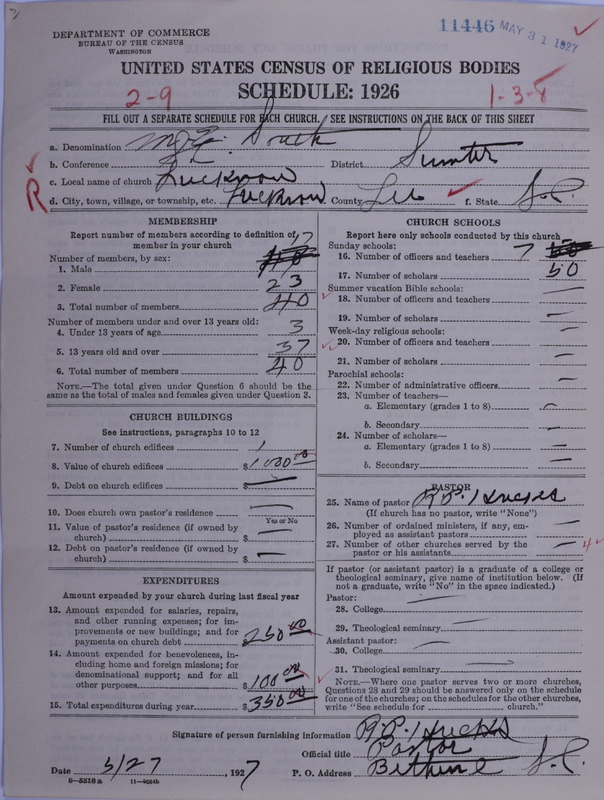 11446 MAY 31 1927
DEPARTMENT OF COMMERCE
BUREAU OF THE CENSUS
WASHINGTON
UNITED STATES CENSUS OF RELIGIOUS BODIES
SCHEDULE: 1926
2-9 1-3-8
FILL OUT A SEPARATE SCHEDULE FOR EACH CHURCH. SEE INSTRUCTIONS ON THE BACK OF THIS SHEET
a. Denomination M. E. South
b. Conference S. C. District Sumter
c. Local name of church Lucknow
R d. City, town, village, or township, etc. Lucknow County Lee f. State S. C.
MEMBERSHIP
Report number of members according to definition of member in your church
Number of members, by sex:
1. Male 17
2. Female 23
3. Total number of members 40
Number of members under and over 13 years old:
4. Under 13 years of age 3
5. 13 years old and over 37
6. Total number of members 40
NOTE.—The total given under Question 6 should be the same as the total of males and females given under Question 3.
CHURCH BUILDINGS
See instructions, paragraphs 10 to 12
7. Number of church edifices 1
8. Value of church edifices $1000.00
9. Debt on church edifices $ —
10. Does church own pastor's residence —
Yes or No
11. Value of pastor's residence (if owned by church) $ —
12. Debt on pastor's residence (if owned by church) $ —
EXPENDITURES
Amount expended by your church during last fiscal year
13. Amount expended for salaries, repairs, and other running expenses; for improvements or new buildings; and for payments on church debt $250.00
14. Amount expended for benevolences, including home and foreign missions; for denominational support; and for all other purposes $100.00
15. Total expenditures during year $350.00
CHURCH SCHOOLS
Report here only schools conducted by this church
Sunday schools:
16. Number of officers and teachers 7
17. Number of scholars 50
Summer vacation Bible schools:
18. Number of officers and teachers —
19. Number of scholars —
Week-day religious schools:
20. Number of officers and teachers —
21. Number of scholars —
Parochial schools:
22. Number of administrative officers —
23. Number of teachers—
a. Elementary (grades 1 to 8) —
b. Secondary —
24. Number of scholars—
a. Elementary (grades 1 to 8) —
b. Secondary —
PASTOR
25. Name of pastor R. P. Hucks
(If church has no pastor, write "None")
26. Number of ordained ministers, if any, employed as assistant pastors —
27. Number of other churches served by the pastor or his assistants — 4
If pastor (or assistant pastor) is a graduate of a college or theological seminary, give name of institution below. (If not a graduate, write "No" in the space indicated.)
Pastor:
28. College —
29. Theological seminary —
Assistant pastor:
30. College —
31. Theological seminary —
NOTE.—Where one pastor serves two or more churches, Questions 28 and 29 should be answered only on the schedule for one of the churches; on the schedules for the other churches, write "See schedule for ........ church."
Signature of person furnishing information R. P. Hucks
Official title Pastor
Date 5/27, 1927 P. O. Address Bethune S. C.
8—5516 a 11—9054b